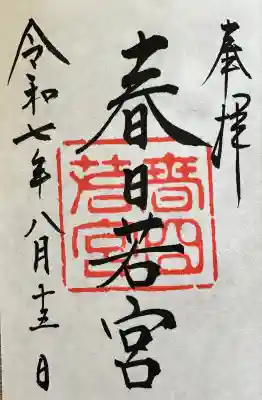 奉拝
春日若宮
春日
若宮
令和七年八月十三日